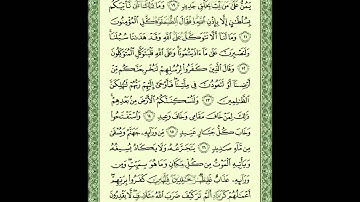 يَمُنُّ عَلَىٰ مَن وَمَا كَانَ لَنَا أَن نَّأْتِيَكُم
بِسُلْطَانٍ إِلَّا بِإِذْنِ اللَّهِ الْمُؤْمِنُونَ
وَمَا لَنَا أَلَّا نَتَوَكَّلَ عَلَى اللَّهِ وَقَدْ هَدَانَا سُبُلَنَا
وَلَنَصْبِرَنَّ عَلَىٰ مَا آذَيْتُمُونَا وَعَلَى اللَّهِ فَلْيَتَوَكَّلِ الْمُتَوَكِّلُونَ
وَقَالَ الَّذِينَ كَفَرُوا لِرُسُلِهِمْ لَنُخْرِجَنَّكُم مِّنْ
أَرْضِنَا أَوْ لَتَعُودُنَّ فِي مِلَّتِنَا فَأَوْحَىٰ إِلَيْهِمْ رَبُّهُمْ لَنُهْلِكَنَّ
الظَّالِمِينَ وَلَنُسْكِنَنَّكُمُ الْأَرْضَ مِن بَعْدِهِمْ
ذَٰلِكَ لِمَنْ خَافَ مَقَامِي وَخَافَ وَعِيدِ وَاسْتَفْتَحُوا
وَخَابَ كُلُّ جَبَّارٍ عَنِيدٍ مِّن وَرَائِهِ جَهَنَّمُ وَيُسْقَىٰ
مِن مَّاءٍ صَدِيدٍ يَتَجَرَّعُهُ وَلَا يَكَادُ يُسِيغُهُ
وَيَأْتِيهِ الْمَوْتُ مِن كُلِّ مَكَانٍ وَمَا هُوَ بِمَيِّتٍ وَمِن
وَرَائِهِ عَذَابٌ غَلِيظٌ كَفَرُوا بِرَبِّهِمْ
أَعْمَالُهُمْ